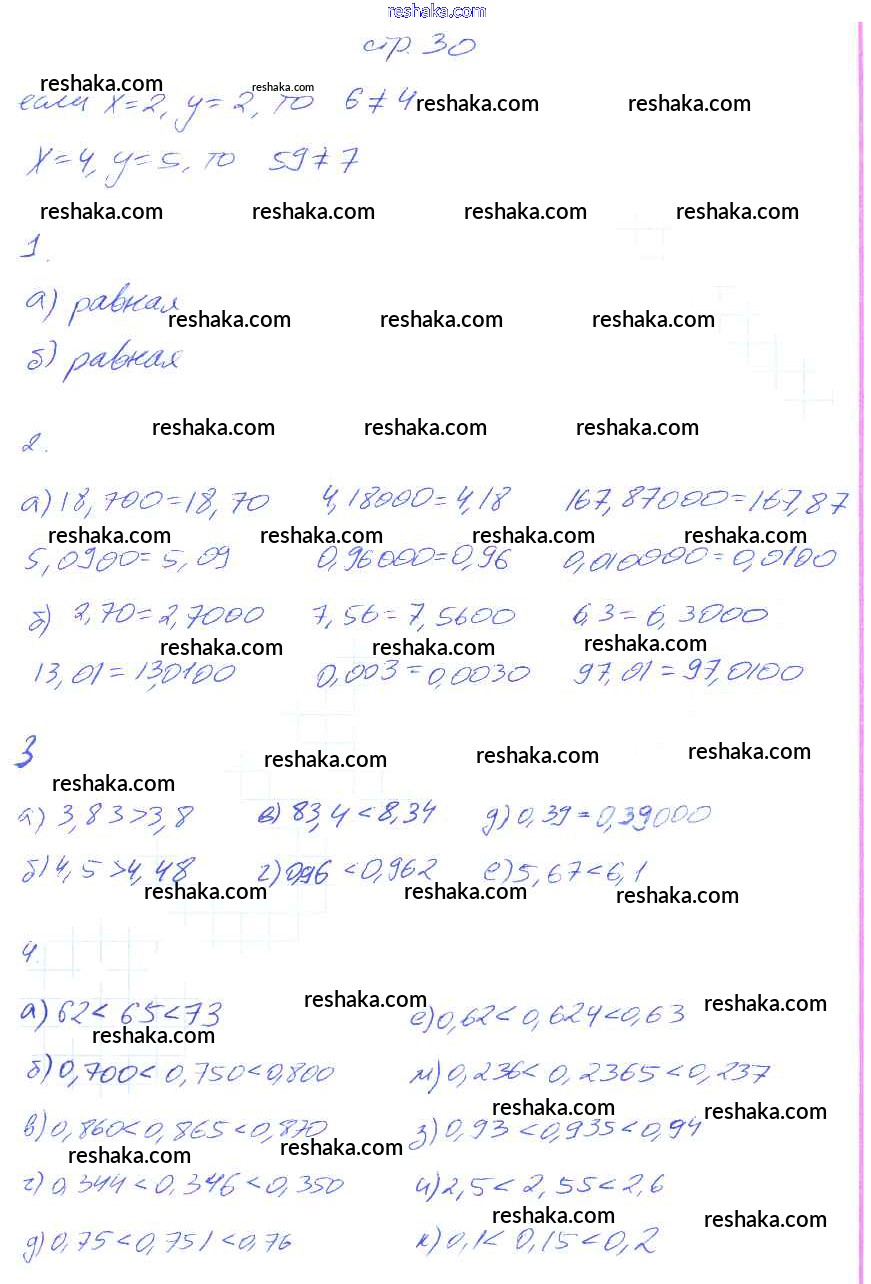 reshaka.com
стр. 30
reshaka.com reshaka.com
если x=2, y=2, то 6≠4 reshaka.com reshaka.com
x=4, y=5, то 59≠7
reshaka.com reshaka.com reshaka.com reshaka.com
1.
а) равная
reshaka.com reshaka.com reshaka.com
б) равная
reshaka.com reshaka.com reshaka.com
2.
а) 18,700=18,70 4,18000=4,18 167,87000=167,87
reshaka.com reshaka.com reshaka.com reshaka.com
5,0900=5,09 0,96000=0,96 0,010000=0,0100
б) 2,70=2,7000 7,56=7,5600 6,3=6,3000
reshaka.com reshaka.com reshaka.com
13,01=13,0100 0,003=0,0030 97,01=97,0100
3
reshaka.com reshaka.com reshaka.com
reshaka.com
а) 3,83>3,8 в) 83,4<8,34 д) 0,39=0,39000
б) 4,5>4,48 г) 0,96<0,962 е) 5,67<6,1
reshaka.com reshaka.com reshaka.com
4.
reshaka.com reshaka.com
а) 62<65<73 е) 0,62<0,624<0,63
reshaka.com
б) 0,700<0,750<0,800 м) 0,236<0,2365<0,237
reshaka.com reshaka.com
в) 0,860<0,865<0,870 з) 0,93<0,935<0,94
reshaka.com reshaka.com
г) 0,344<0,346<0,350 и) 2,5<2,55<2,6
reshaka.com reshaka.com
д) 0,75<0,751<0,76 к) 0,1<0,15<0,2